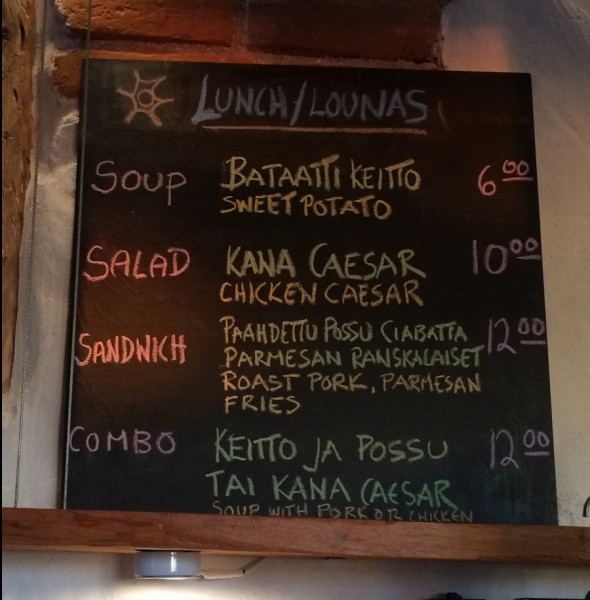 LUNCH/LOUNAS
SOUP BATAATTI KEITTO 6.00
SWEET POTATO
SALAD KANA CAESAR 10.00
CHICKEN CAESAR
SANDWICH PAAHDETTU POSSU CIABATTA 12.00
PARMESAN RANSKALAISET
ROAST PORK, PARMESAN
FRIES
COMBO KEITTO JA POSSU 12.00
TAI KANA CAESAR
SOUP WITH PORK OR CHICKEN